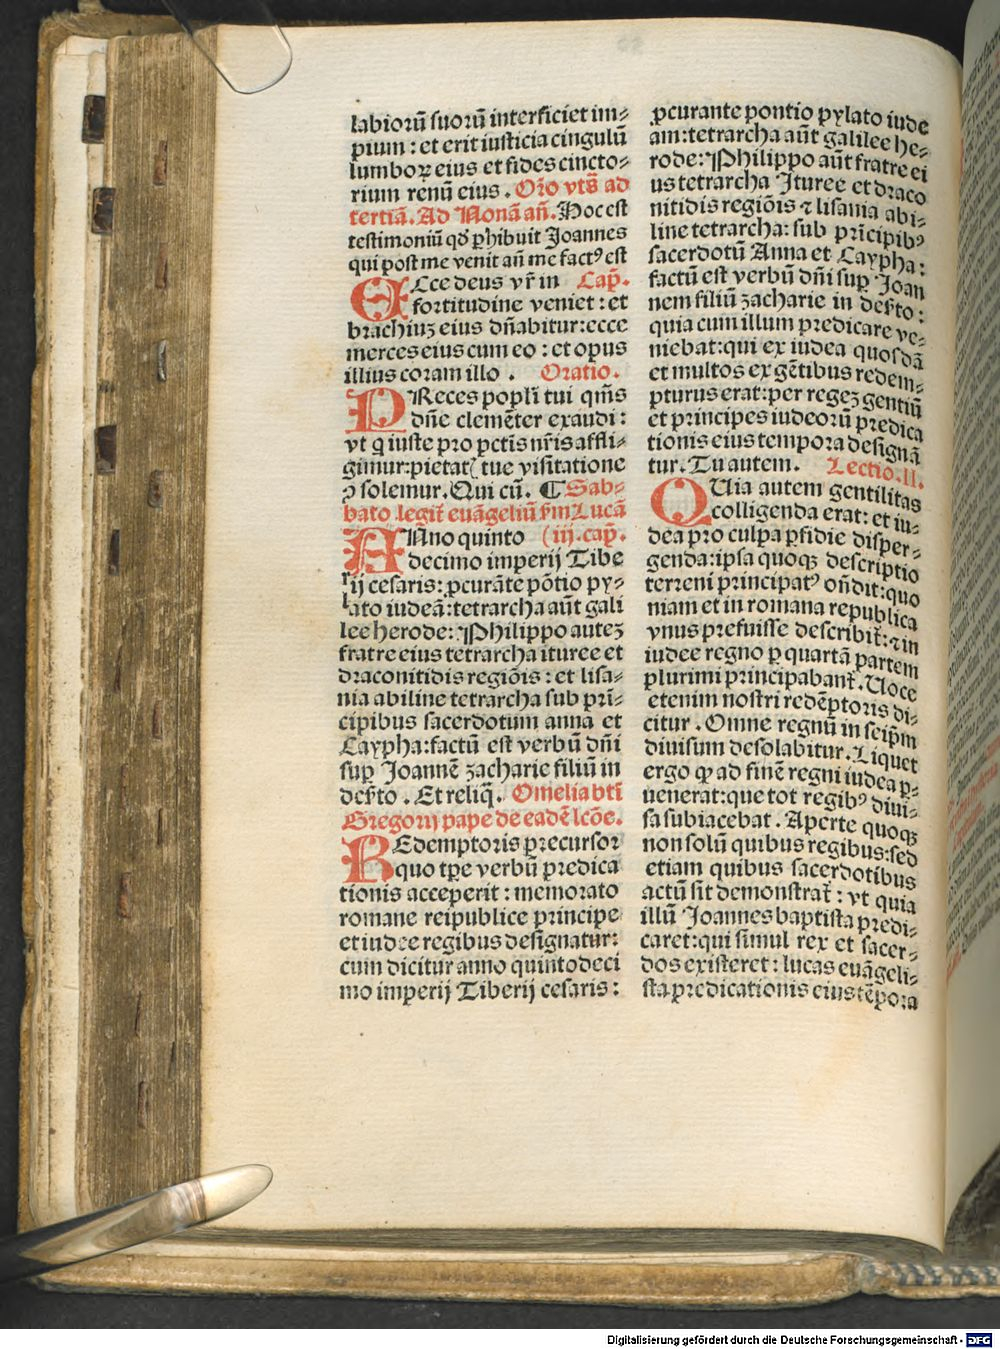 labiorū suorū interficiet im⸗
pium : et erit iusticia cingulū
lumboꝝ eius et fides cincto⸗
rium renū eius . Or̄o vts̄ ad
tertiā. Ad Nonā an̄. Hoc est
testimoniū qd̛ p̱hibuit Joannes
qui post me venit an̄ me factꝰ est
ECce deus vr̄ in Cap̄.
fortitudine veniet : et
brachiuꝫ eius dn̄abitur: ecce
merces eius cum eo : et opus
illius coram illo . Oratio.
PReces popl̄i tui qm̄s
dn̄e clemēter exaudi :
vt q iuste pro pctīs nr̄is affli⸗
gimur: pietat( tue visitatione
ꝯsolemur. Qui cū. ¶ Sab⸗
bato legit̄ euāgeliū s̄m Lucā
ANno quinto (iij. cap̄.
decimo imperij Tibe
rij cesaris: ꝓcurāte pōtio py⸗
lato iudeā: tetrarcha aūt gali
lee herode: Philippo auteꝫ
fratre eius tetrarcha ituree et
draconitidis regiōis : et lisa⸗
nia abiline tetrarcha sub prī⸗
cipibus sacerdotum anna et
Caypha: factū est verbū dn̄i
sup̱ Joannē zacharie filiū in
des̄to . Et reliq̄. Omelia bt̄i
Gregorij pape de eadē lc̄oe.
REdemptoris precursor
quo tp̄e verbū predica
tionis acceperit : memorato
romane reipublice principe
et iudee regibus designatur:
cum dicitur anno quinto deci
mo imperij Tiberij cesaris :
ꝓcurante pontio pylato iude
am: tetrarcha aūt galilee he⸗
rode: Philippo aūt fratre ei
us tetrarcha Ituree et draco
nitidis regiōis ⁊ lisania abi⸗
line tetrarcha: sub prīcipibꝰ
sacerdotū Anna et Caypha :
factū est verbū dn̄i sup̱ Joan
nem filiū zacharie in des̄to :
quia cum illum predicare ve⸗
niebat: qui ex iudea quosdā
et multos ex gētibus redem⸗
pturus erat: per regeꝫ gentiū
et principes iudeorū predica
tionis eius tempora designā
tur. Tu autem. Lectio. II.
QUia autem gentilitas
colligenda erat: et iu⸗
dea pro culpa p̱fidie disper⸗
genda: ipsa quoqꝫ descriptio
terreni principatꝰ on̄dit: quo
niam et in romana republica
vnus prefuisse describit̄: ⁊ in
iudee regno p̱ quartā partem
plurimi principabant̄. Uoce
etenim nostri redēptoris di⸗
citur . Omne regnū in seip̄m
diuisum desolabitur. Liquet
ergo ꝙ ad finē regni iudea p̱⸗
uenerat: que tot regibꝰ diui⸗
sa subiacebat . Aperte quoqꝫ
non solū quibus regibus: sed
etiam quibus sacerdotibus
actū sit demonstrat̄ : vt quia
illū Joannes baptista predi⸗
caret: qui simul rex et sacer⸗
dos existeret : lucas euāgeli⸗
sta predicationis eius tēpora
Digitalisierung gefördert durch die Deutsche Forschungsgemeinschaft - DFG